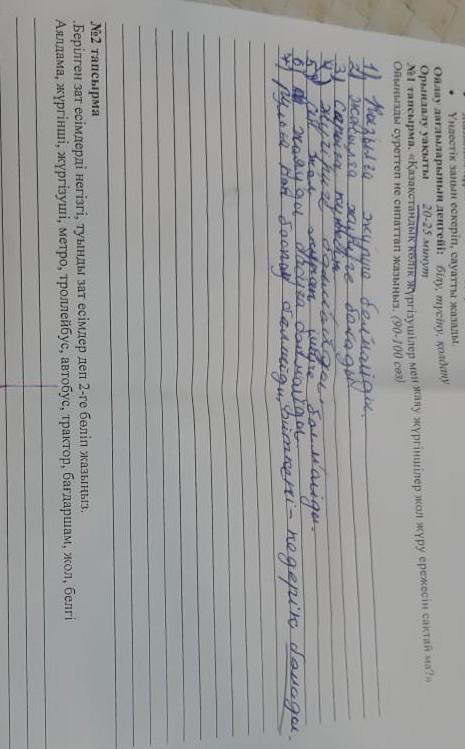 • Үндестік заңын ескеріп, сауатты жазады.
Ойлау дағдыларының деңгейі: білу, түсіну, қолдану
Орындалу уақыты 20-25 минут
№1 тапсырма. «Қазақстандық көлік жүргізушілер мен жаяу жүргіншілер жол жүру ережесін сақтай ма?»
Ойыңызды суреттеп не сипаттап жазыңыз. (90-100 сөз)
1) Қызылға жүруге болмайды.
2) жасылға жүруге болады
3) сарыға күтеміз
4) жүгіруге болмайды
5) жол болмайды.
6) жаяу болмайды
7) рульы болмайды, өйткені - кедергі болады.
№2 тапсырма
.Берілген зат есімдерді негізгі, туынды зат есімдер деп 2-ге бөліп жазыңыз.
Аялдама, жүргінші, жүргізуші, метро, троллейбус, автобус, трактор, бағдаршам, жол, белгі